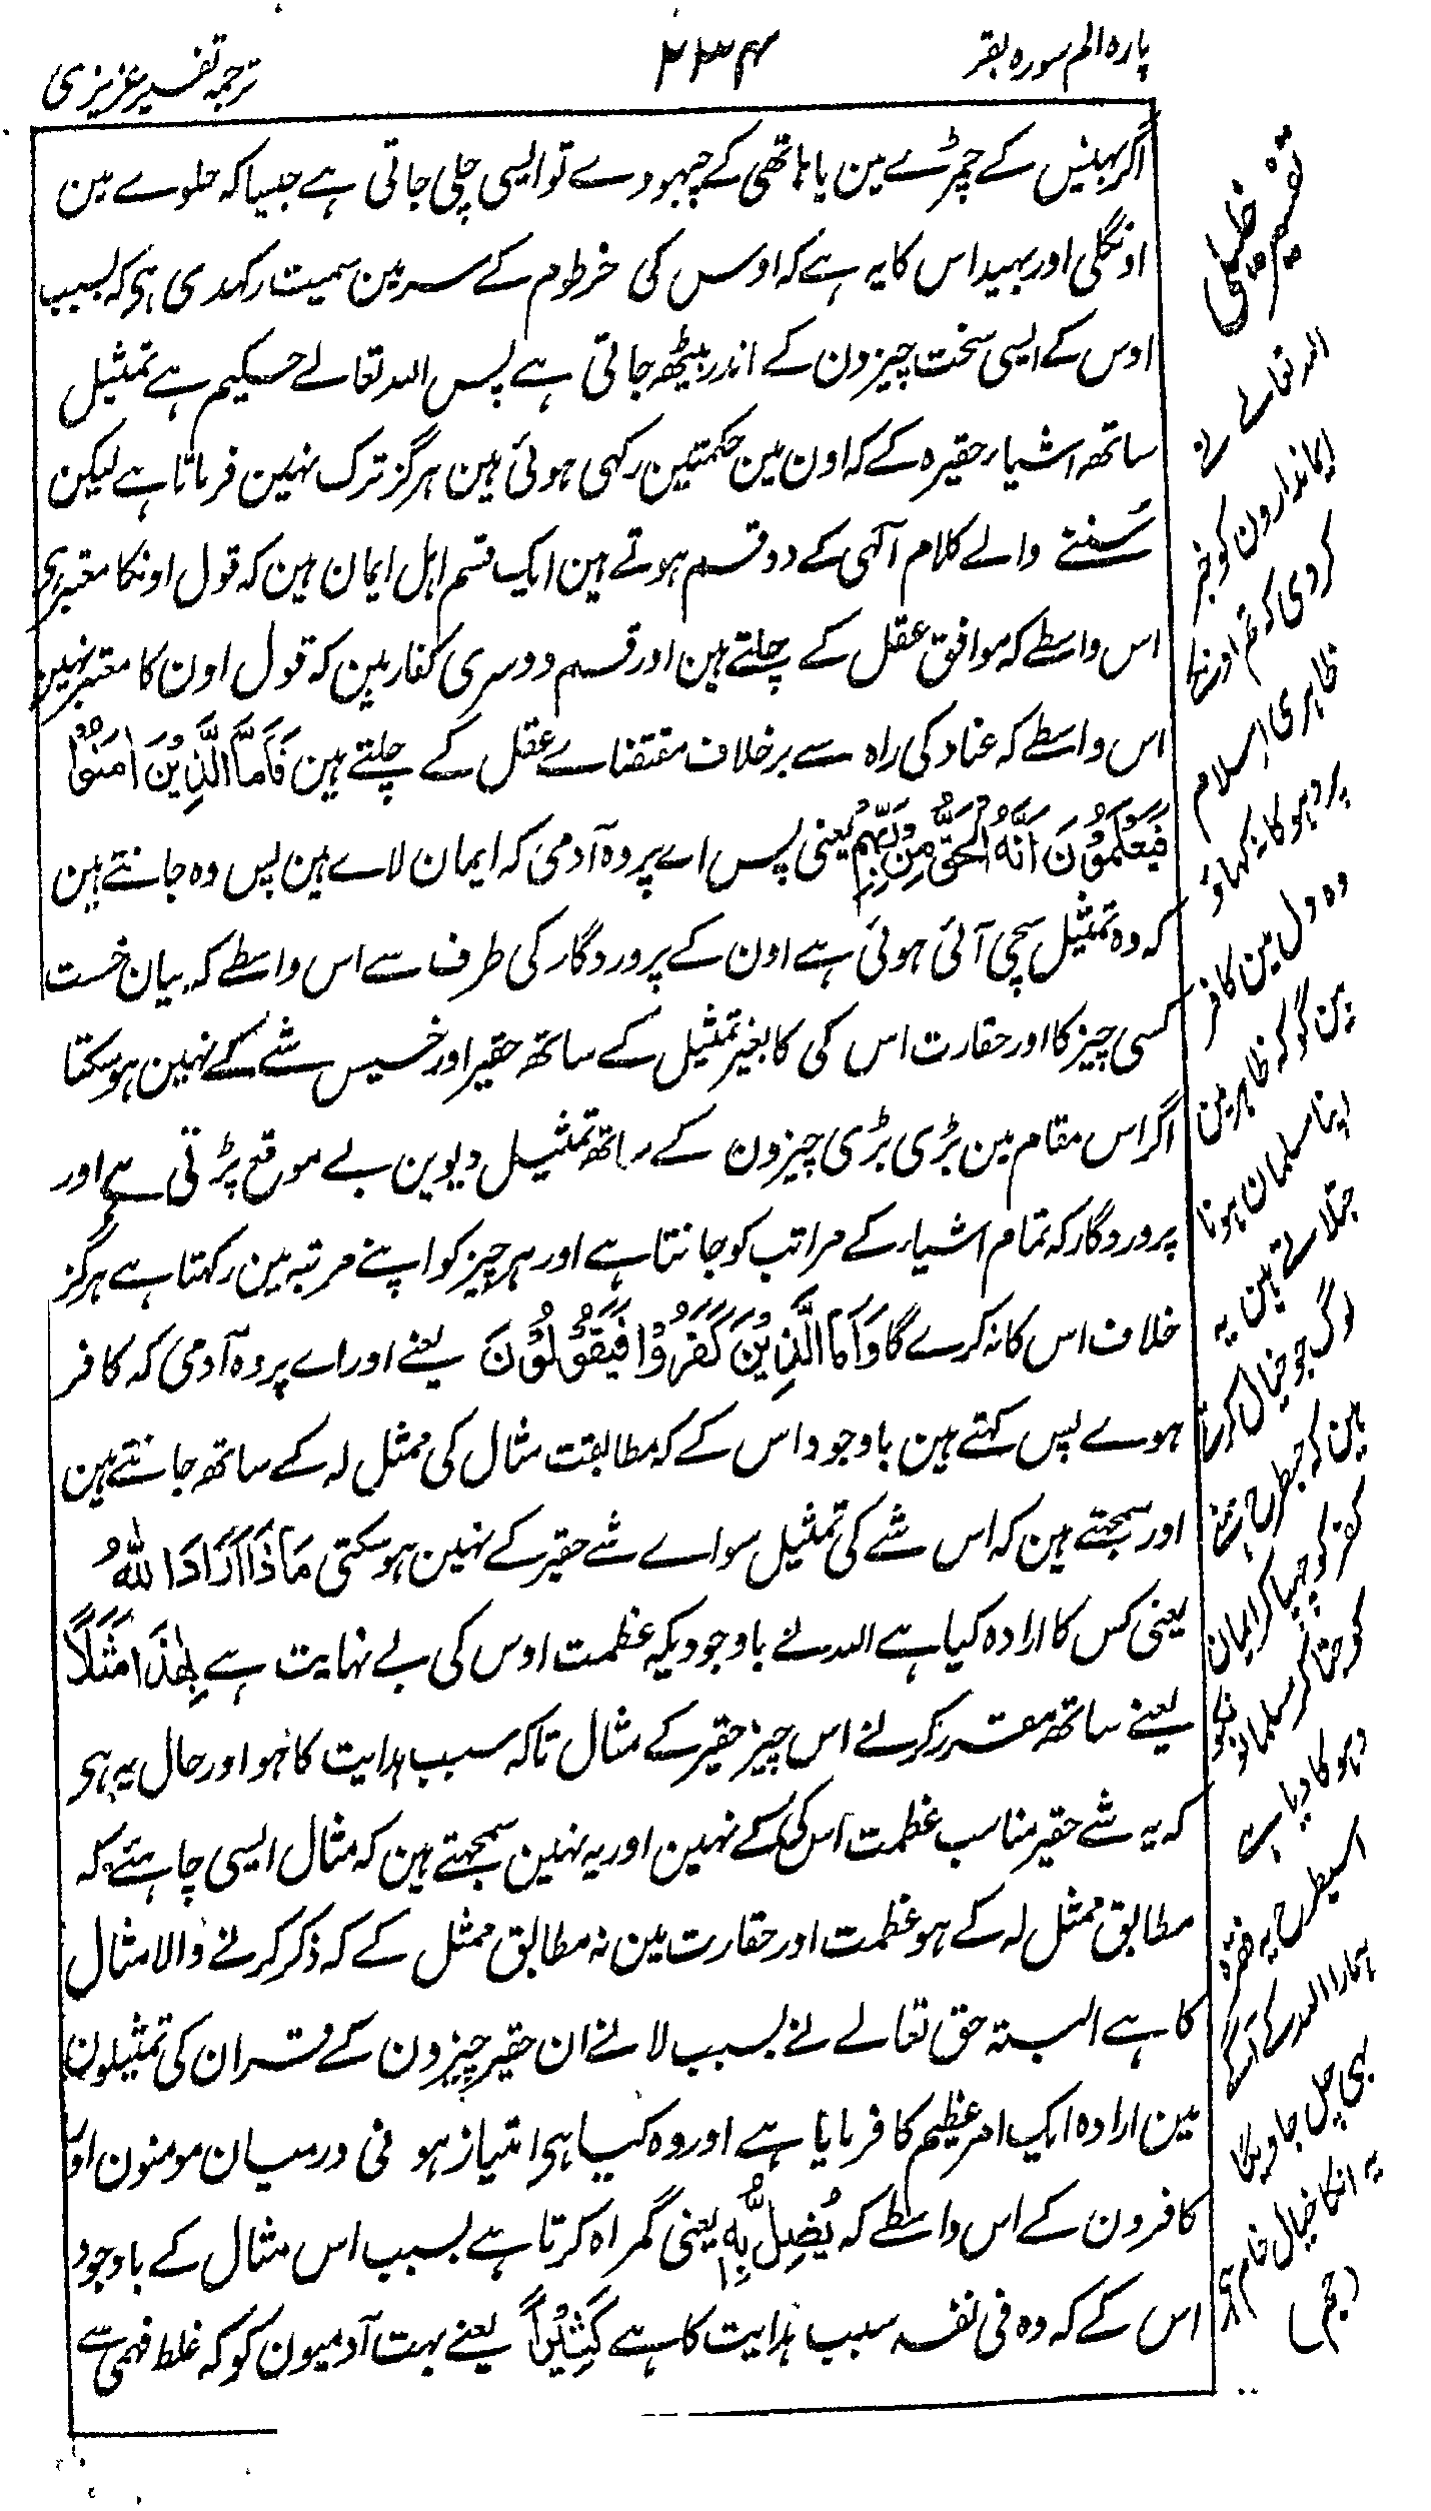 پاره الم سوره بقر
۲۳۴
ترجمہ تفسیر عزیزی
اگر بہینس کے چمڑے مین یا ہاتھی کے چبہووے تو ایسی چلی جاتی ہے جیسا کہ حلوے مین
اونگلی اور بہید اس کا یہ ہے کہ اوس کی خرطوم کے سر مین سمیت رکہدی ہی کہ بسبب
اوس کے ایسی سخت چیزون کے اندر بیٹھ جاتی ہے پس اللہ تعالے حکیم ہے تمثیل
ساتھ اشیاء حقیرہ کے کہ اون مین حکمتین رکہی ہوئی ہین ہرگز ترک نہین فرماتا ہے لیکن
سُننے والے کلام آلہی کے دو قسم ہوتے ہین ایک قسم اہل ایمان ہین کہ قول اونکا معتبر ہی
اس واسطے کہ موافق عقل کے چلتے ہین اور قسم دوسری کفار ہین کہ قول اون کا معتبر نہین
اس واسطے کہ عناد کی راہ سے برخلاف مقتضاے عقل کے چلتے ہین فَاَمَّا الَّذِيْنَ اٰمَنُوْا
فَيَعْلَمُوْنَ اَنَّهُ الْحَقُّ مِنْ رَّبِّهِمْ یعنی پس اے پر وہ آدمی کہ ایمان لاے ہین پس وہ جانتے ہین
کہ وہ تمثیل سچی آئی ہوئی ہے اون کے پروردگار کی طرف سے اس واسطے کہ بیان خست
کسی چیز کا اور حقارت اس کی کا بغیر تمثیل کے ساتھ حقیر اور خسیس شے کے نہین ہو سکتا
اگر اس مقام مین بڑی بڑی چیزون کے ساتھ تمثیل دیوین بے موقع پڑتی ہے اور
پروردگار کہ تمام اشیاء کے مراتب کو جانتا ہے اور ہر چیز کو اپنے مرتبہ مین رکہتا ہے ہرگز
خلاف اس کا نہ کرے گا وَاَمَّا الَّذِيْنَ كَفَرُوْا فَيَقُوْلُوْنَ یعنے اور اے پر وہ آدمی کہ کافر
ہوے پس کہتے ہین باوجود اس کے کہ مطابقت مثال کی ممثل لہ کے ساتھ جانتے ہین
اور سمجہتے ہین کہ اس شے کی تمثیل سواے شے حقیر کے نہین ہو سکتی مَاذَا اَرَادَ اللّٰهُ
یعنی کس کا ارادہ کیا ہے اللہ نے باوجودیکہ عظمت اوس کی بے نہایت ہے بِهٰذَا مَثَلًا
یعنے ساتھ مقرر کرنے اس چیز حقیر کے مثال تاکہ سبب ہدایت کا ہو اور حال یہ ہی
کہ یہ شے حقیر مناسب عظمت اس کی کے نہین اور یہ نہین سمجہتے ہین کہ مثال ایسی چاہئے کہ
مطابق ممثل لہ کے ہو عظمت اور حقارت مین نہ مطابق ممثل کے کہ ذکر کرنے والا مثال
کا ہے البتہ حق تعالے نے بسبب لانے ان حقیر چیزون کے قران کی تمثیلون
مین ارادہ ایک امر عظیم کا فرمایا ہے اور وہ کیا ہی امتیاز ہو فی درمیان مومنون اور
کافرون کے اس واسطے کہ يُضِلُّ بِهٖ یعنی گمراہ کرتا ہے بسبب اس مثال کے باوجود
اس کے کہ وہ فی نفسہ سبب ہدایت کا ہے كَثِيْرًا یعنے بہت آدمیون کو کہ غلط فہمی سے
تفسیر خلیلی
اللہ تعالے نے
ایماندارون کو خبر
کر دی کہ تم اونکے
ظاہری اسلام
پر دہوکا نہ کہاؤ
وہ دل مین کافر
ہین گو کہ ظاہر مین
اپنا مسلمان ہونا
جتلاتے ہین یہ
لوگ جو خیال کرتے
ہین کہ جسطرح اپنے
کفر کو چہپا کر ایمان
کو جتا کر مسلمانونکو
دہوکا دیا ہے
اسیطرح یہ فقرہ
ہمارا اللہ کے آگے
بہی چل جاویگا
یہ انکا خیال خام ہی